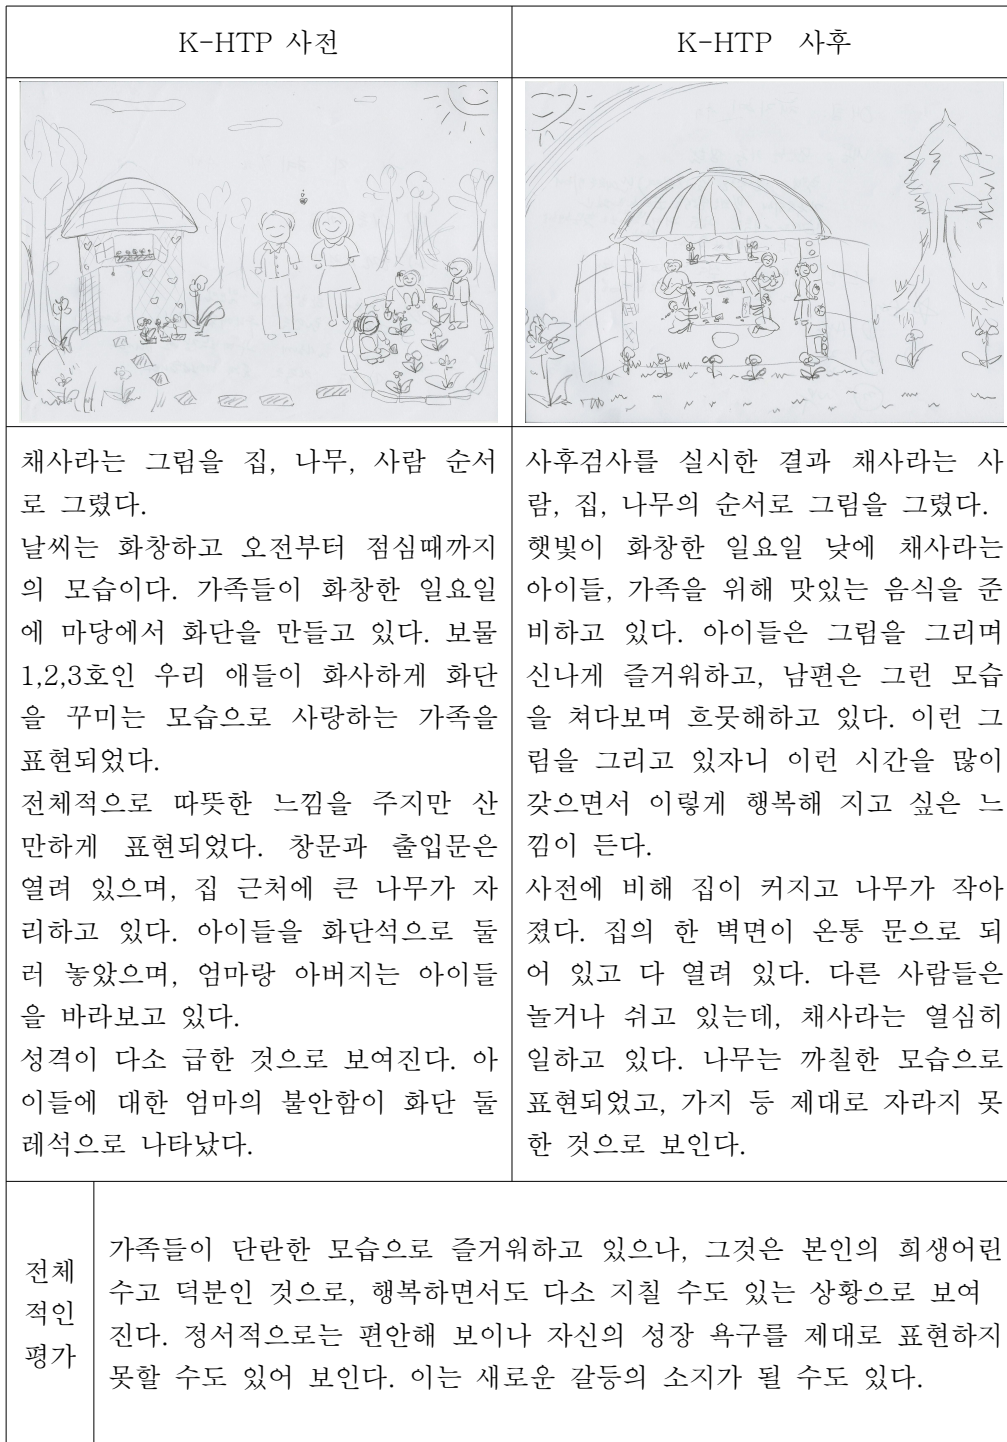 K-HTP 사전
K-HTP 사후
채사라는 그림을 집, 나무, 사람 순서
로 그렸다.
날씨는 화창하고 오전부터 점심때까지
의 모습이다. 가족들이 화창한 일요일
에 마당에서 화단을 만들고 있다. 보물
1,2,3호인 우리 애들이 화사하게 화단
을 꾸미는 모습으로 사랑하는 가족을
표현되었다.
전체적으로 따뜻한 느낌을 주지만 산
만하게 표현되었다. 창문과 출입문은
열려 있으며, 집 근처에 큰 나무가 자
리하고 있다. 아이들을 화단석으로 둘
러 놓았으며, 엄마랑 아버지는 아이들
을 바라보고 있다.
성격이 다소 급한 것으로 보여진다. 아
이들에 대한 엄마의 불안함이 화단 둘
레석으로 나타났다.
사후검사를 실시한 결과 채사라는 사
람, 집, 나무의 순서로 그림을 그렸다.
햇빛이 화창한 일요일 낮에 채사라는
아이들, 가족을 위해 맛있는 음식을 준
비하고 있다. 아이들은 그림을 그리며
신나게 즐거워하고, 남편은 그런 모습
을 쳐다보며 흐뭇해하고 있다. 이런 그
림을 그리고 있자니 이런 시간을 많이
갖으면서 이렇게 행복해 지고 싶은 느
낌이 든다.
사전에 비해 집이 커지고 나무가 작아
졌다. 집의 한 벽면이 온통 문으로 되
어 있고 다 열려 있다. 다른 사람들은
놀거나 쉬고 있는데, 채사라는 열심히
일하고 있다. 나무는 까칠한 모습으로
표현되었고, 가지 등 제대로 자라지 못
한 것으로 보인다.
전체
적인
평가
가족들이 단란한 모습으로 즐거워하고 있으나, 그것은 본인의 희생어린
수고 덕분인 것으로, 행복하면서도 다소 지칠 수도 있는 상황으로 보여
진다. 정서적으로는 편안해 보이나 자신의 성장 욕구를 제대로 표현하지
못할 수도 있어 보인다. 이는 새로운 갈등의 소지가 될 수도 있다.